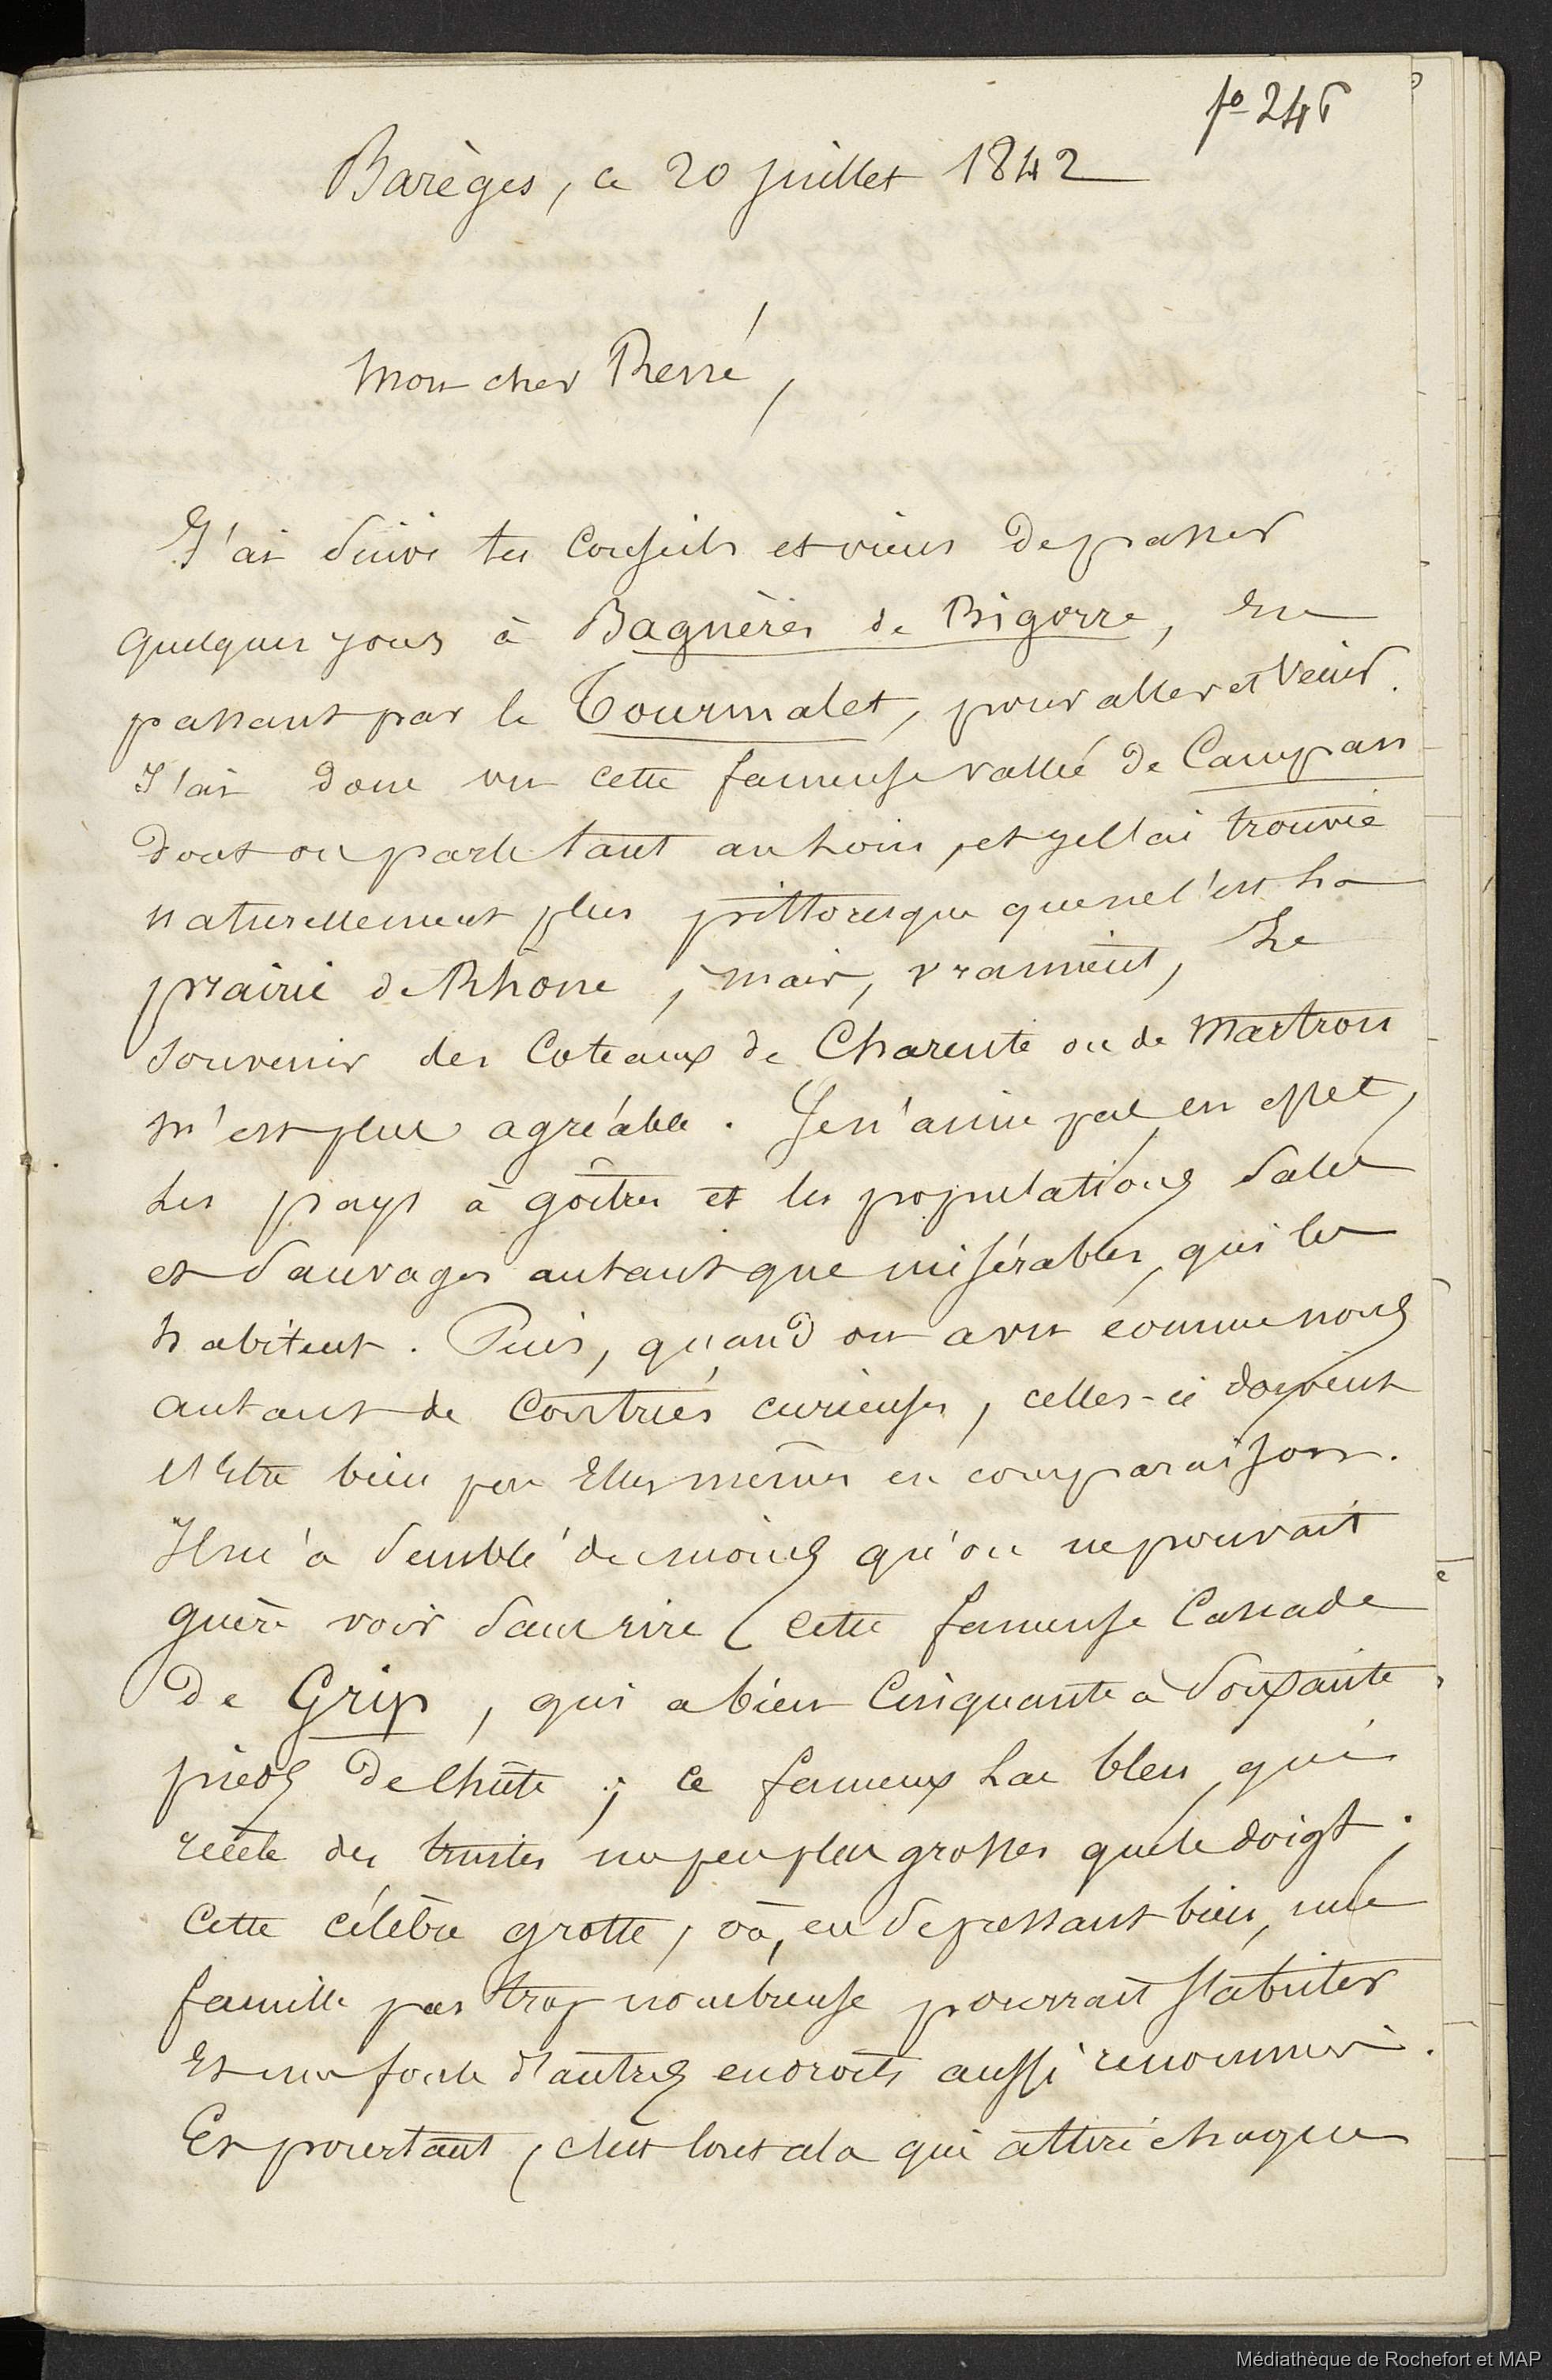 fo 246
Barèges, ce 20 juillet 1842
Mon cher René,
J'ai suivi tes conseils et viens de passer
quelques jours à Bagnères de Bigorre, en
passant par le Tourmalet, pour aller et venir.
J'ai donc vu cette fameuse vallée de Campan
dont on parle tant au loin, et je l'ai trouvée
naturellement plus pittoresque que ne l'est la
prairie de Rhône ; mais, vraiment, le
souvenir des coteaux de Charente ou de Martrou
m'est plus agréable. Je n'aime pas, en effet,
les pays à goîtres et les populations sales
et sauvages autant que misérables, qui les
habitent. Puis, quand on a vu comme nous
autant de contrées curieuses, celles-ci doivent
l'être bien peu elles mêmes en comparaison.
Il m'a semblé du moins qu'on ne pouvait
guère voir sans rire (cette fameuse Cascade
de Grip, qui a bien cinquante à soixante
pieds de chûte ; ce fameux Lac bleu, qui
recèle des truites un peu plus grosses que le doigt ;
cette célèbre grotte, où, en se pressant bien, une
famille pas trop nombreuse pourrait s'abriter
et une foule d'autres endroits aussi renommés.
Et pourtant, c'est tout cela qui attire chaque
Médiathèque de Rochefort et MAP